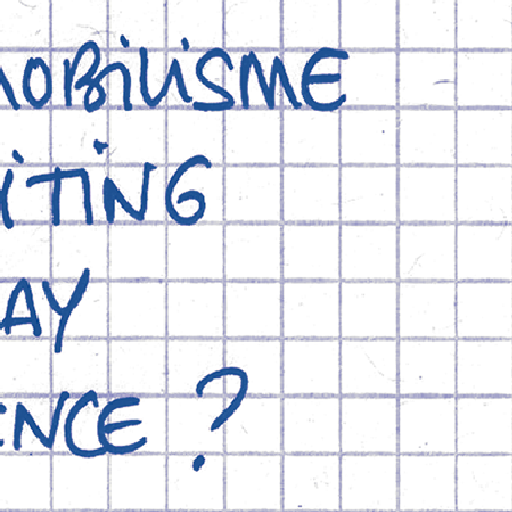 MOBILISME
ITING
AY
ENCE ?